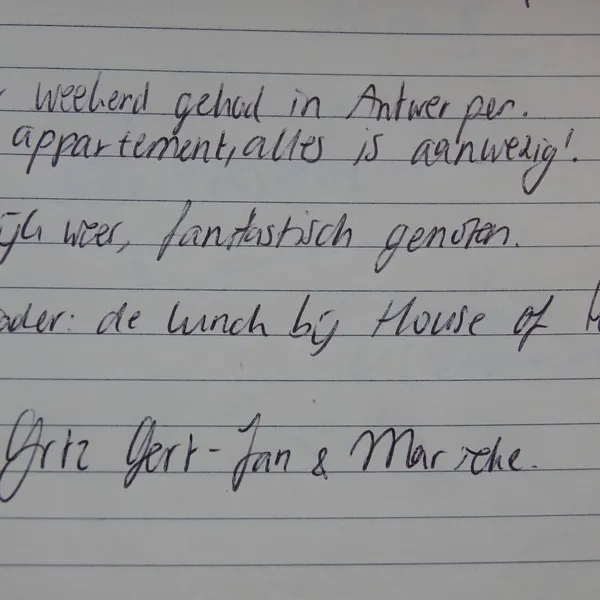 weekend gehad in Antwerpen.
appartement, alles is aanwezig!
weer, fantastisch genoten.
de lunch bij House of
Grtz Gert-Jan & Marieke.